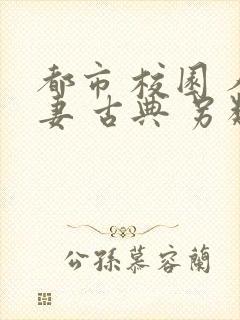 都市 校园
妻 古典 另
公孙慕容兰